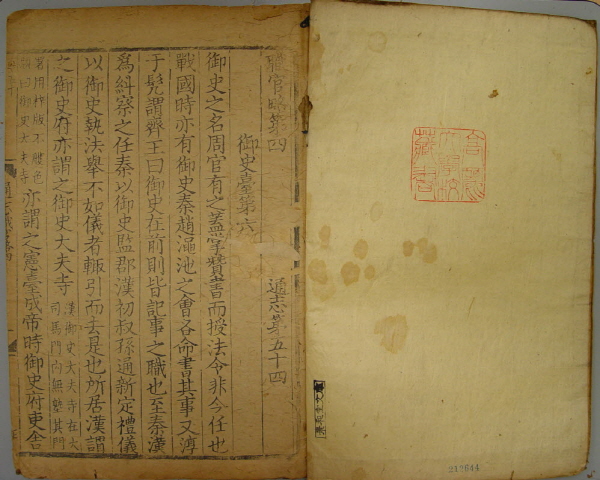 職官略第四 通志第五十四
御史臺第六
御史之名周官有之蓋掌贊書而授法令非今任也
戰國時亦有御史秦趙澠池之會各命書其事又淳
于髡謂齊王曰御史在前則皆記事之職也至秦漢
爲糾察之任秦以御史監郡漢初叔孫通新定禮儀
以御史執法舉不如儀者輒引而去是也所居漢謂
之御史府亦謂之御史大夫寺
漢御史大夫寺在大
司馬門內無塾其門
署用梓版不雘色
題曰御史大夫寺
亦謂之憲臺成帝時御史府吏舍
藏書
212644